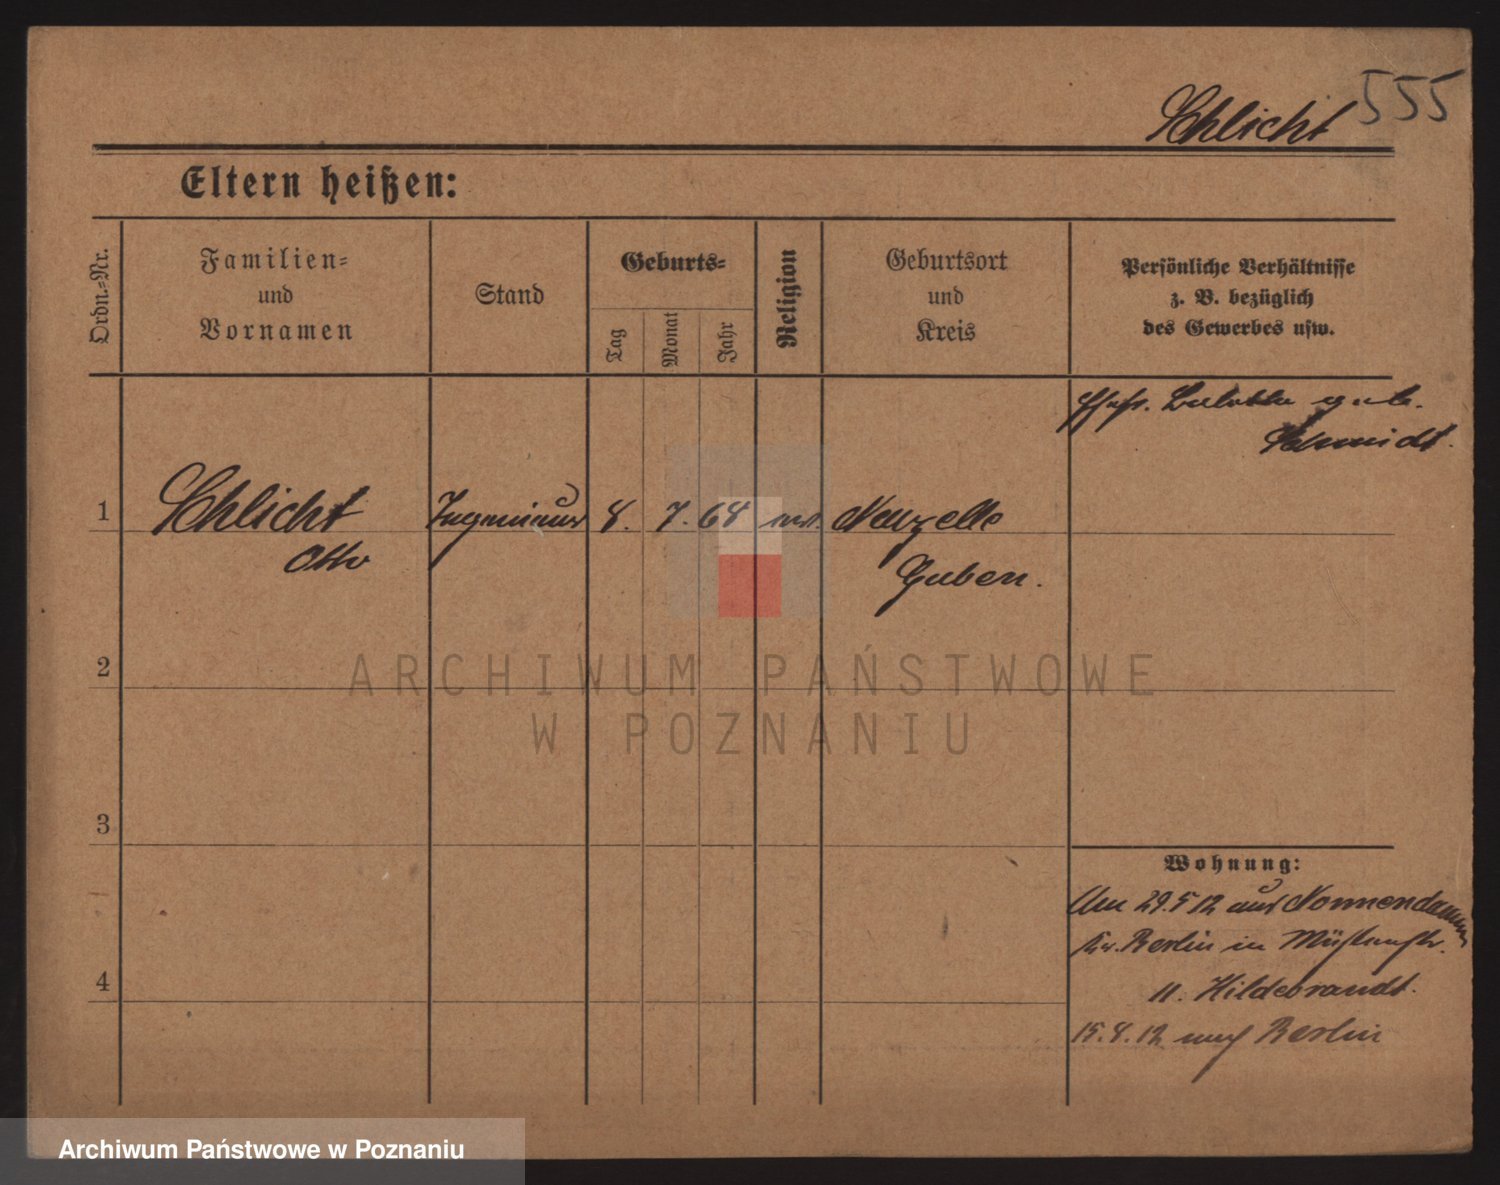 Schlicht 555
Eltern heißen:
Ordn.-Nr.
Familien-
und
Vornamen
Stand
Geburts-
Tag
Monat
Jahr
Religion
Geburtsort
und
Kreis
Persönliche Verhältnisse
z. B. bezüglich
des Gewerbes usw.
geb.
Schmidt.
1 Schlicht Ingenieur 8. 7. 68 Neuzelle
Otto Guben.
2
3
4
Wohnung:
Am 29.5 12 aus Nonnendamm
Kr. Berlin in
11. Hildebrandt.
15.8.12 nach Berlin
ARCHIWUM PAŃSTWOWE
W POZNANIU
Archiwum Państwowe w Poznaniu